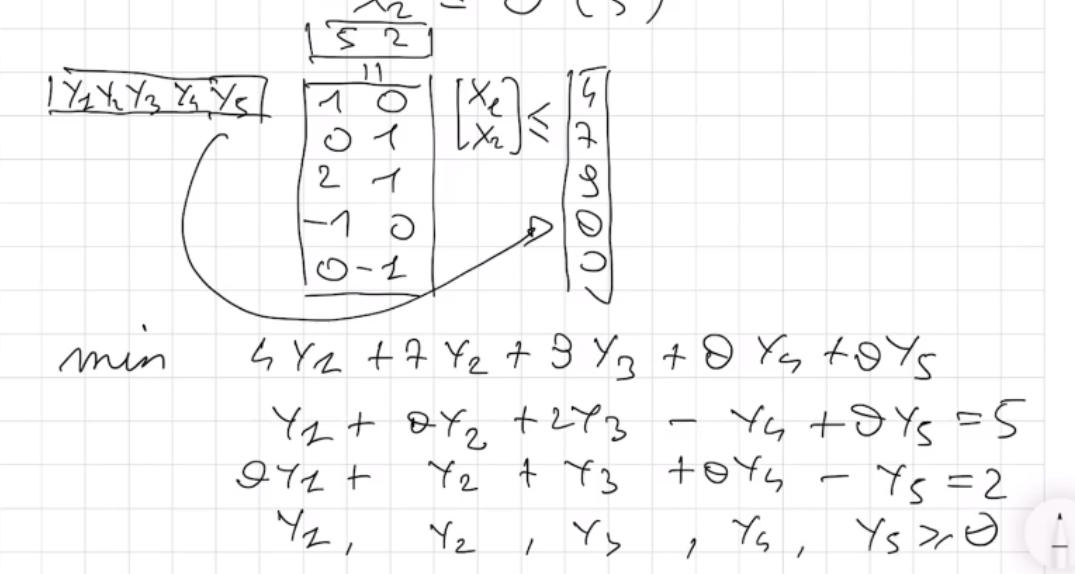 x2 ≥ 0 (5)
5 2
11
Y1 Y2 Y3 Y4 Y5
1 0 [X1 ≤ 4
0 1 X2] 7
2 1 9
-1 0 0
0 -1 0
min 4Y1 + 7Y2 + 9Y3 + 0Y4 + 0Y5
Y1 + 0Y2 + 2Y3 - Y4 + 0Y5 = 5
0Y1 + Y2 + Y3 + 0Y4 - Y5 = 2
Y1, Y2, Y3, Y4, Y5 ≥ 0